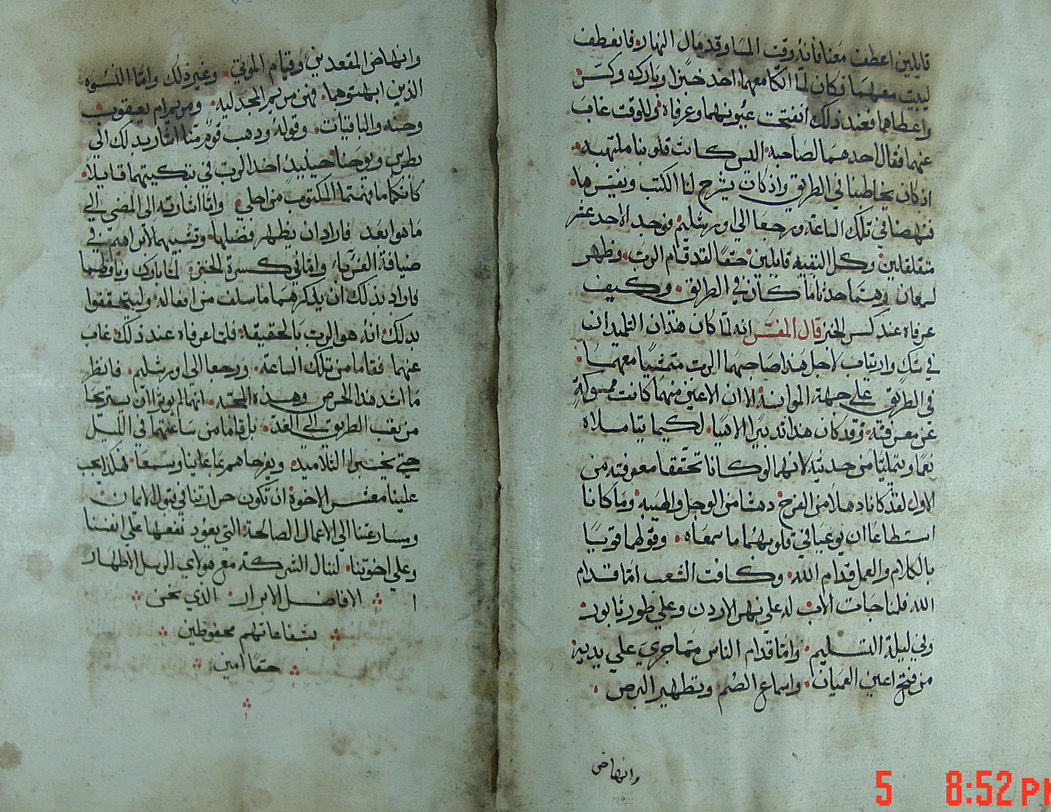 قايلين اعطف معنا فانه وقت المسا وقد مال النهار فانعطف
ليبت معهما فكان لما اتكا معهما اخذ خبزا وبارك وكسر
واعطاهما فعند ذلك انفتحت عيونهما وعرفاه وللوقت غاب
عنهما فقال احدهما لصاحبه اليس كانت قلوبنا ملتهبه
اذ كان يخاطبنا في الطريق واذ كان يشرح لنا الكتب ويفسرها
فنهضا في تلك الساعة ورجعا الي اورشليم فوجد الاحد عشر
متقلقلين وكل البقيه قايلين حقا لقد قام الرب وظهر
لسمعان وهما حدثا ما كان في الطريق وكيف
عرفاه عند كسر الخبز قال المفسر انه لما كان هذان التلميدان
في شك وارتياب لاجل هذا صاحبهما الرب متمشيا معهما
في الطريق علي جهة الموانسة الا ان الاعين منهما كانت ممسوكة
عن معرفته وقد كان هذا تدبيرا الاهيا لكيما يتاملاه
نعما ويتمليا من حديثه لانهما لو كانا تحققا معرفته من
الاول لقد كانا دهلا من الفرح دهشا من الوجل والهيبه وما كانا
استطاعا ان يوعيا في قلوبهما ما سمعاه وقولهما قويا
بالكلام والعمل قدام الله وكافت الشعب اما قدام
الله فلمناجات الاب له علي نهر الاردن وعلي طور تابور
وفي ليلة التسليم واما قدام الناس مما جري علي يديه
من فتح اعين العميان واسماع الصم وتطهير البرص
وانهاض
وانهاض المقعدين وقيام الموتي وغير ذلك واما النسوه
الذين ابهتوهما فهن مريم المجدليه ومريم ام يعقوب
وحنه والباقيات وقوله ودهب قوم منا اشار بدلك الي
بطرس ويوحنا حينيد اخد الرب في تبكيتهما قايلا
كانكما ما فهمتما المكتوب من اجلي واما اشارته الي المضي الي
ما هو ابعد فاراد ان يظهر فضلهما وتشبههما لابراهيم في
ضيافة الغربا واما في كسرة الخبز لما بارك وناولهما
فاراد بدلك ان يدكرهما ما سلف من افعاله وليتحققوا
بدلك انه هو الرب بالحقيقة فلما عرفاه عند ذلك غاب
عنهما فقاما من تلك الساعة ورجعا الي اورشليم فانظر
ما اشد هذا الحرص وهده المحبه انهما لم يوثرا ان يستريحا
من تعب الطريق الي الغد بل قاما من ساعتهما في الليل
حتي يخبرا التلاميد ويفرحاهم بما عاينا وسمعا فلذا يجب
علينا معشر الاخوة ان تكون حرارتنا في قبول الايمان
ومسارعتنا الي الاعمال الصالحة التي يعود نفعها علي انفسنا
وعلي اخوتنا لننال الشركة مع هولاي الرسل الاطهار
الافاضل الابرار الذي نحن
بشفاعاتهم محفوظين
حقا امين
5 8:52 PM